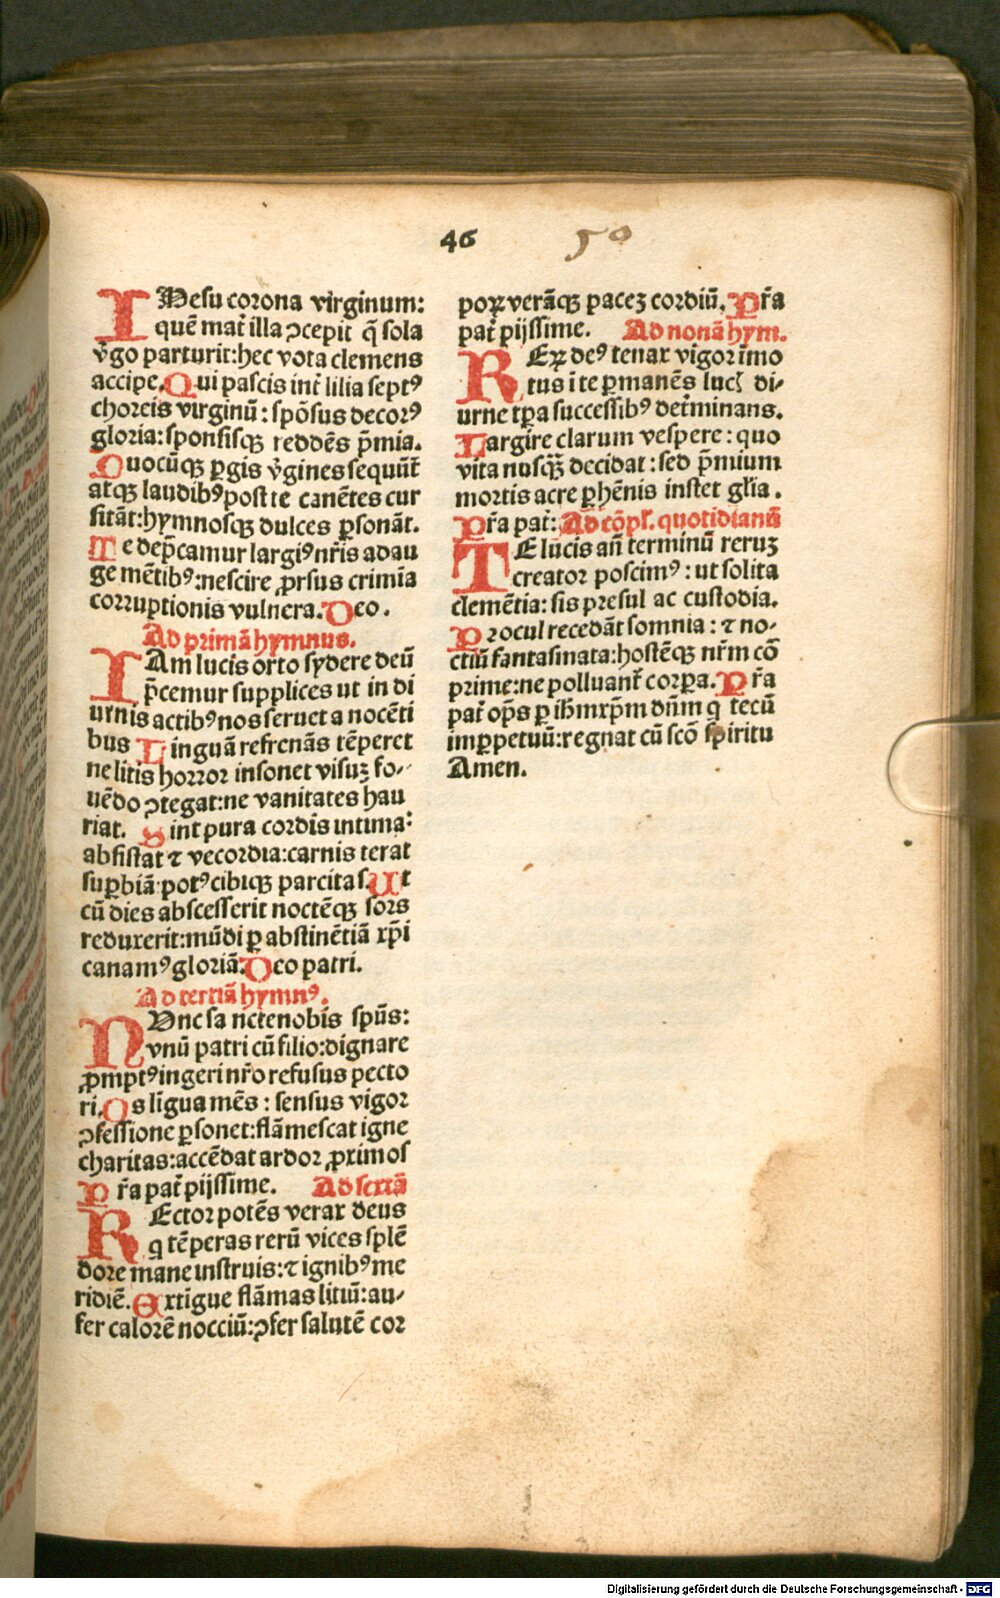 46 50
IHesu corona virginum:
quē mat̄ illa ꝯcepit q̄ sola
v̄go parturit:hec vota clemens
accipe. Qui pascis int̄ lilia septꝰ
choreis virginū: spōsus decorꝰ
gloria: sponsisqꝫ reddēs p̄mia.
Quocūqꝫ ꝑgis v̄gines sequūt̄
atqꝫ laudibꝰ post te canētes cur
sitāt: hymnosqꝫ dulces ꝑsonāt.
Te dep̄camur largiꝰ nr̄is adau
ge mētibꝰ: nescire ꝓrsus crimīa
corruptionis vulnera. Deo.
Ad primā hymnus.
IAm lucis orto sydere deū
p̄cemur supplices ut in di
urnis actibꝰ nos seruet a nocēti
bus Linguā refrenās tēperet
ne litis horror insonet visuꝫ fo-
uēdo ꝯtegat: ne vanitates hau
riat. Sint pura cordis intima:
absistat ⁊ vecordia: carnis terat
suꝑbiā potꝰ cibiqꝫ parcitas. Ut
cū dies abscesserit noctēqꝫ sors
reduxerit: mūdi ꝑ abstinētiā xp̄i
canamꝰ gloriā. Deo patri.
Ad tertiā hymnꝰ.
NVnc sancte nobis sp̄us:
vnū patri cū filio: dignare
ꝓmptꝰ ingeri nr̄o refusus pecto
ri. Os līgua mēs: sensus vigor
ꝯfessione ꝑsonet: flāmescat igne
charitas: accēdat ardor ꝓximos
Pr̄a pat̄ pijssime. Ad sextā
REctor potēs verax deus
q tēperas rerū vices splē
dore mane instruis: ⁊ ignibꝰ me
ridiē. Extigue flāmas litiū: au-
fer calorē nocciū: ꝯfer salutē cor
poꝝ verāqꝫ paceꝫ cordiū. Pr̄a
pat̄ pijssime. Ad nonā hym.
REꝝ deꝰ tenax vigor īmo
tus ī te ꝑmanēs lucꝭ di-
urne tꝑa successibꝰ det̄minans.
Largire clarum vespere: quo
vita nusqꝫ̄ decidat: sed p̄mium
mortis acre ꝑhēnis instet gl̄ia.
Pr̄a pat̄: Ad cōpl̄. quotidianū
TE lucis an̄ terminū reruꝫ
creator poscimꝰ: ut solita
clemētia: sis presul ac custodia.
Procul recedāt somnia: ⁊ no-
ctiū fantasmata: hostēqꝫ nr̄m cō
prime: ne polluant̄ corꝑa. Pr̄a
pat̄ op̄s ꝑ ih̄m xp̄m dn̄m q tecū
imꝑpetuū: regnat cū scō spiritu
Amen.
Digitalisierung gefördert durch die Deutsche Forschungsgemeinschaft - DFG